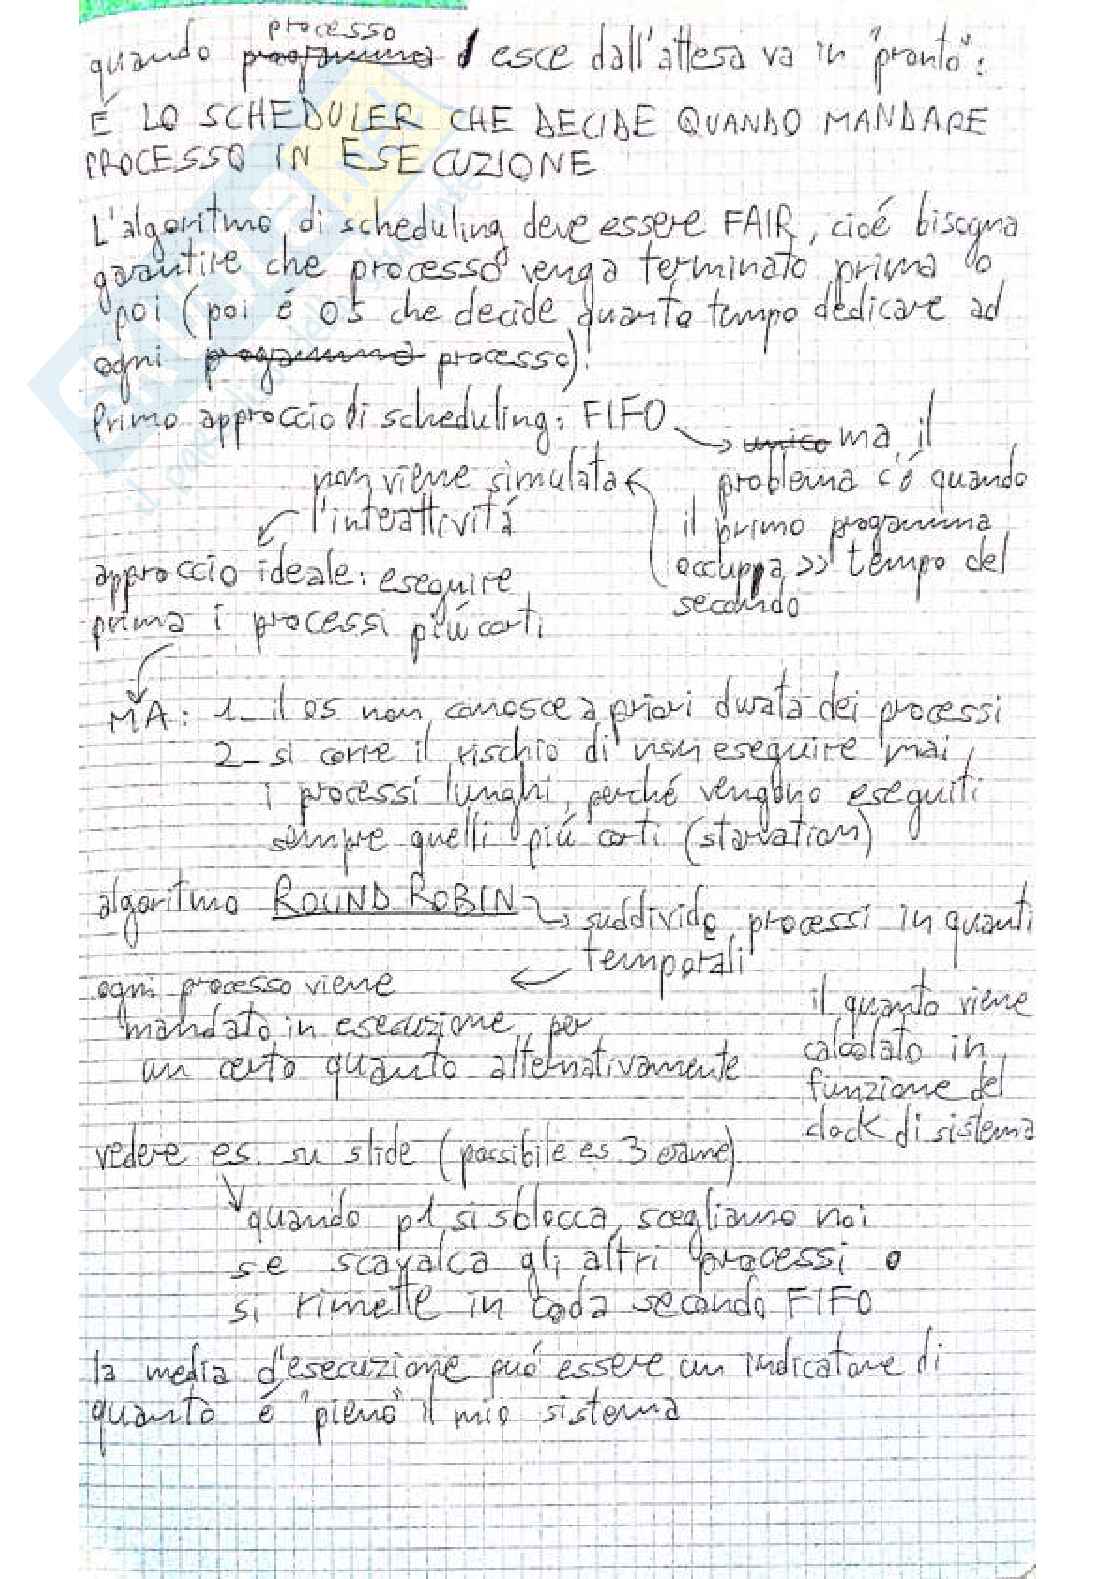 processo
quando programma 1 esce dall'attesa va in "pronto":
É LO SCHEDULER CHE DECIDE QUANDO MANDARE
PROCESSO IN ESECUZIONE
L'algoritmo di scheduling deve essere FAIR, cioé bisogna
garantire che processo venga terminato prima o
poi (poi é OS che decide quanto tempo dedicare ad
ogni progamma processo)!
Primo approccio di scheduling: FIFO
→ unico ma il
problema c'é quando
il primo progamma
occuppa >> tempo del
secondo
non viene simulata
l'interattivitá
approccio ideale: eseguire
prima i processi piú corti
MA: 1- il OS non conosce a priori durata dei processi
2- si corre il rischio di non eseguire mai
i processi lunghi, perché vengono eseguiti
sempre quelli piú corti (starvation)
algoritmo ROUND ROBIN → suddivide processi in quanti
temporali
ogni processo viene
mandato in esecuzione per
un certo quanto alternativamente
il quanto viene
calcolato in
funzione del
clock di sistema
vedere es. su slide (possibile es 3 esame)
quando p1 si sblocca, scegliamo noi
se scavalca gli altri processi o
si rimette in coda secondo FIFO
la media d'esecuzione puó essere un indicatore di
quanto é "pieno" il mio sistema